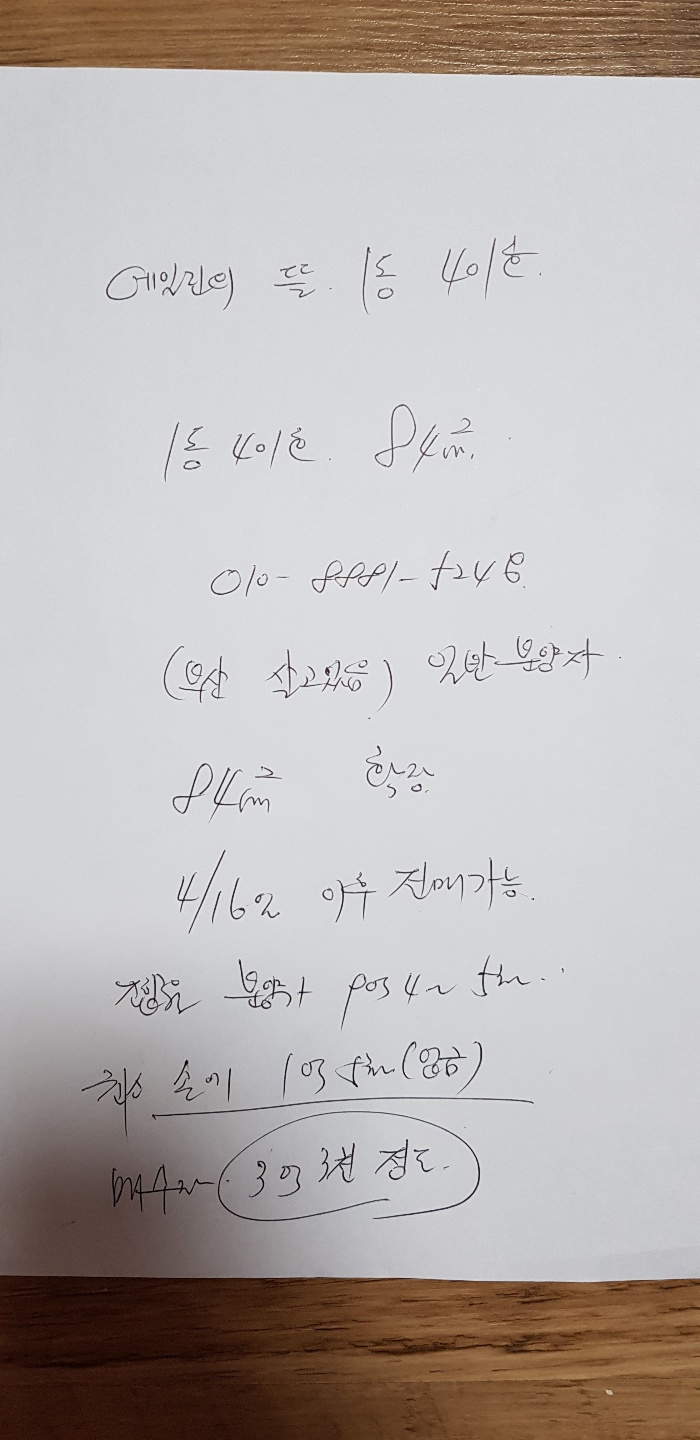 에일린의 뜰. 1동 401호.
1동 401호. 84m².
010-8881-5246
(부산 살고있음) 일반분양자.
84m² 확장.
4/16일 이후 전매가능.
분양가 8억 4~5천..
손에 1억 5천(현금)
매수자. 3억 3천 정도.